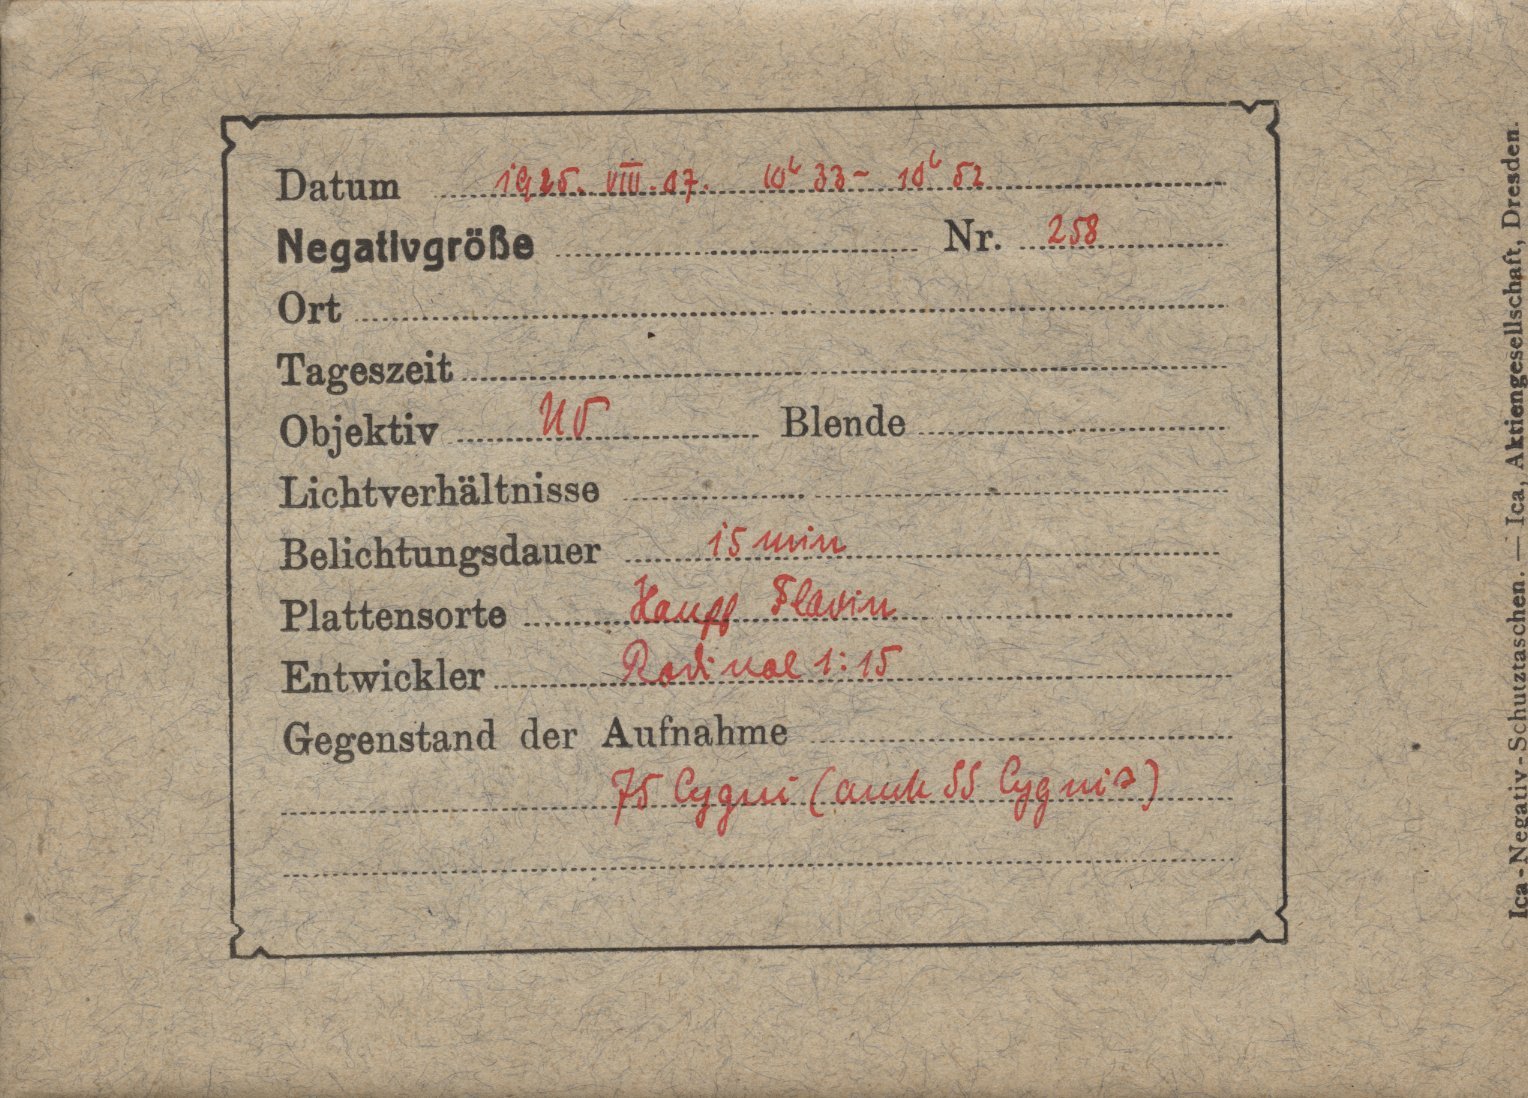 Datum 1925. VIII. 07. 10h 33 - 10h 52
Negativgröße Nr. 258
Ort
Tageszeit
Objektiv Blende
Lichtverhältnisse
Belichtungsdauer 15 min
Plattensorte Hauff Flavin
Entwickler Rodinal 1:15
Gegenstand der Aufnahme
75 Cygni (auch SS Cygni?)
Ica-Negativ-Schutztaschen. — Ica, Aktiengesellschaft, Dresden.